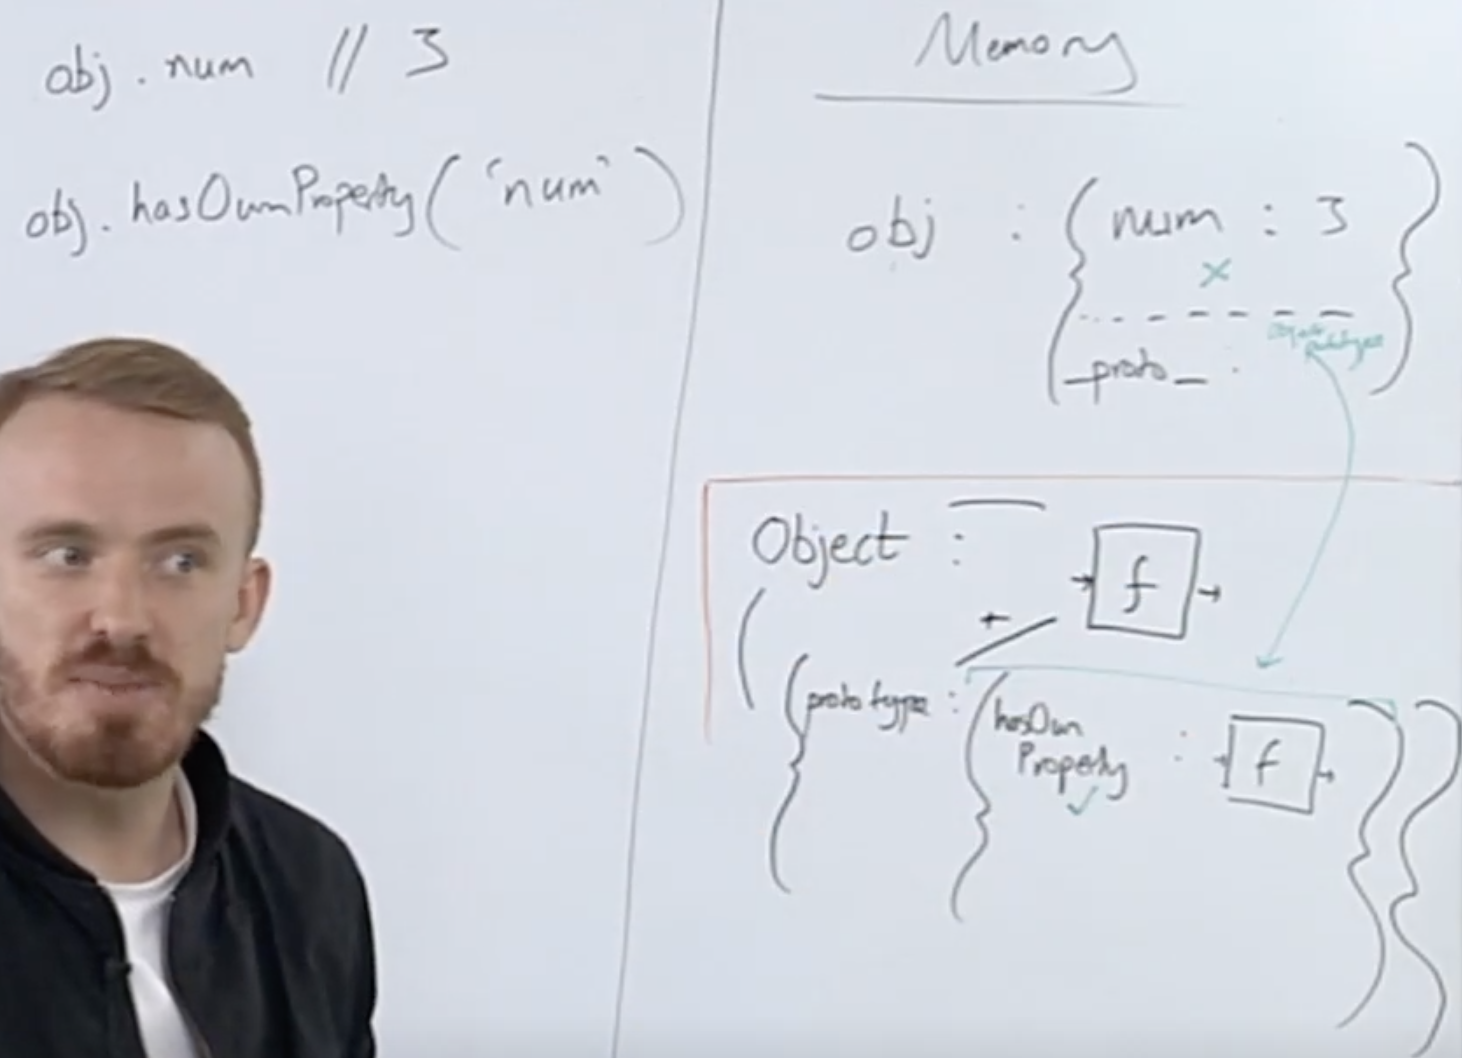 obj . num // 3
obj. hasOwnProperty( 'num' )
Memory
obj : { num : 3 }
_proto_
Object :
f
+
{ prototype : { hasOwn
Property : f } }